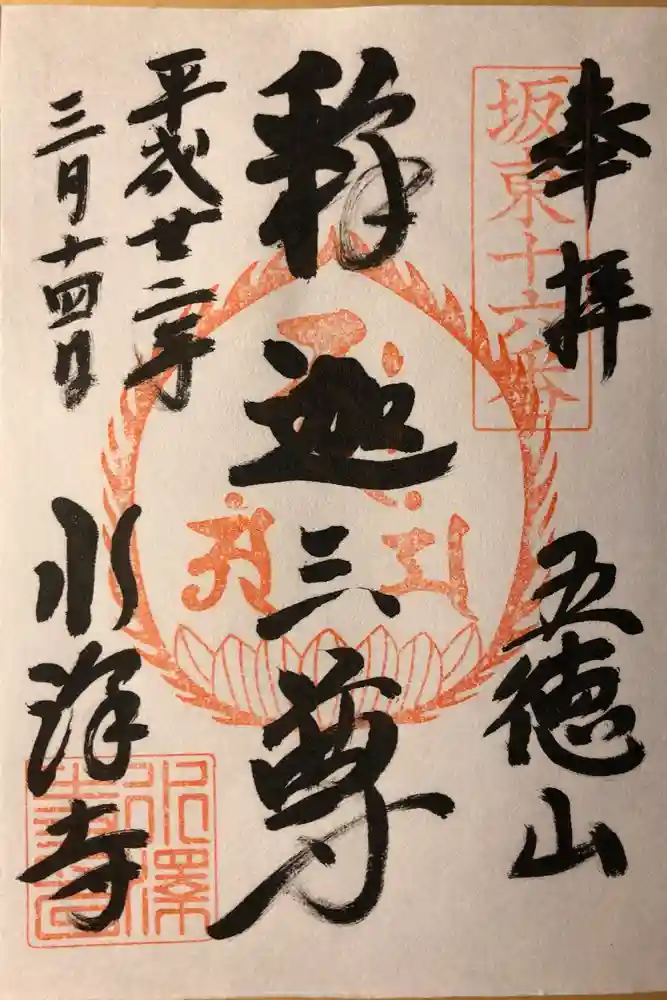 奉拝
坂東十六番
五徳山
釈迦三尊
平成廿二年
三月十四日
水澤寺
水澤寺印